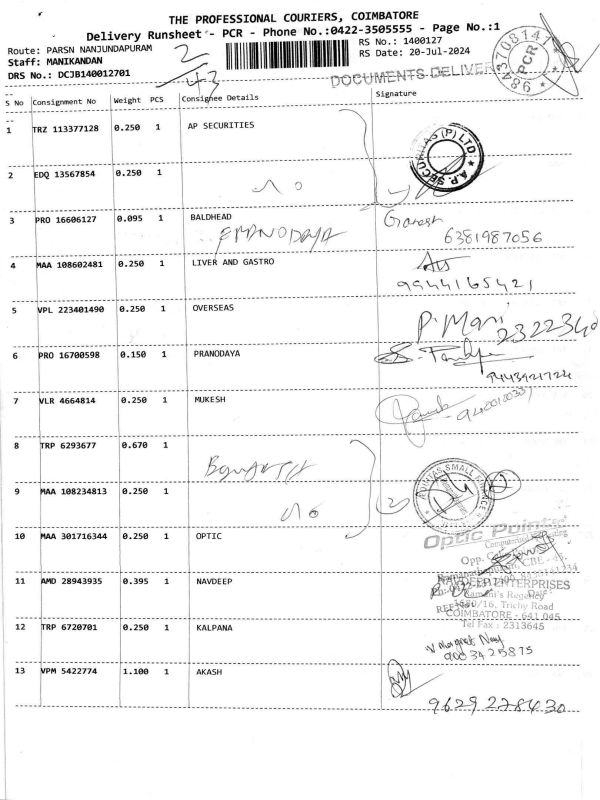 THE PROFESSIONAL COURIERS, COIMBATORE
Delivery Runsheet - PCR - Phone No.:0422-3505555 - Page No.:1
Route: PARSN NANJUNDAPURAM
RS No.: 1400127
Staff: MANIKANDAN
RS Date: 20-Jul-2024
DRS No.: DCJB140012701
2/43
DOCUMENTS DELIVER
9843708147 PCR
S No Consignment No Weight PCS Consignee Details Signature
1 TRZ 113377128 0.250 1 AP SECURITIES
A.P. SECURITAS (P) LTD.
2 EDQ 13567854 0.250 1
3 PRO 16606127 0.095 1 BALDHEAD
Ganesh
6381987056
4 MAA 108602481 0.250 1 LIVER AND GASTRO
9944165421
5 VPL 223401490 0.250 1 OVERSEAS
P. Mani
6 PRO 16700598 0.150 1 PRANODAYA
9443921724
7 VLR 4664814 0.250 1 MUKESH
8 TRP 6293677 0.670 1
9 MAA 108234813 0.250 1
SMALL FINANCE
2
10 MAA 301716344 0.250 1 OPTIC
Optic Points
Opp.
11 AMD 28943935 0.395 1 NAVDEEP
NAVDEEP ENTERPRISES
Regency
1680/16, Trichy Road
COIMBATORE - 641 045
Tel Fax : 2313645
12 TRP 6720701 0.250 1 KALPANA
9003425875
13 VPM 5422774 1.100 1 AKASH
9629228430